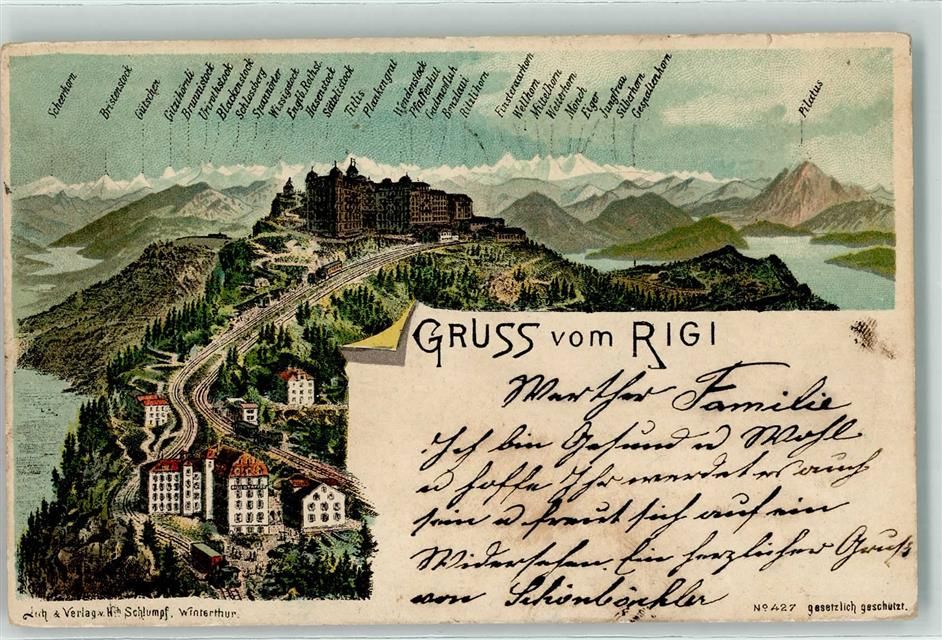 Scheerhorn
Bristenstock
Gitschen
Gitzihörnli
Brunnistock
Urirothstock
Blackenstock
Schlossberg
Spannörter
Wissigstock
Engelb. Rothst.
Hasenstock
Sättelistock
Titlis
Plankengrat
Wendenstock
Pfaffenhut
Gadmerfluh
Benzlaui
Ritzlihorn
Finsteraarhorn
Wellhorn
Mittelhorn
Wetterhorn
Mönch
Eiger
Jungfrau
Silberhorn
Gespaltenhorn
Pilatus
GRUSS vom RIGI
Werther Familie
Ich bin Gesund u Wohl
u hoffe Ihr werdet es auch
sein u freut sich auf ein
Widersehen. Ein herzlicher Gruß
von Schönbächler
Lith. & Verlag v. Hch Schlumpf, Winterthur.
No 427 gesetzlich geschützt.